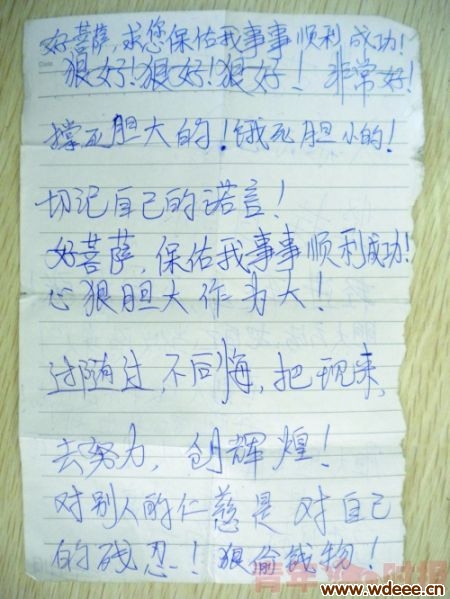 好菩萨,求您保佑我事事顺利成功!
狠好!狠好!狠好! 非常好!
撑死胆大的!饿死胆小的!
切记自己的诺言!
好菩萨,保佑我事事顺利成功!
心狠胆大作为大!
过随过,不回悔,把现来,
去努力,创辉煌!
对别人的仁慈是对自己
的残忍!狠偷钱物!
青年时报
www.wdeee.cn